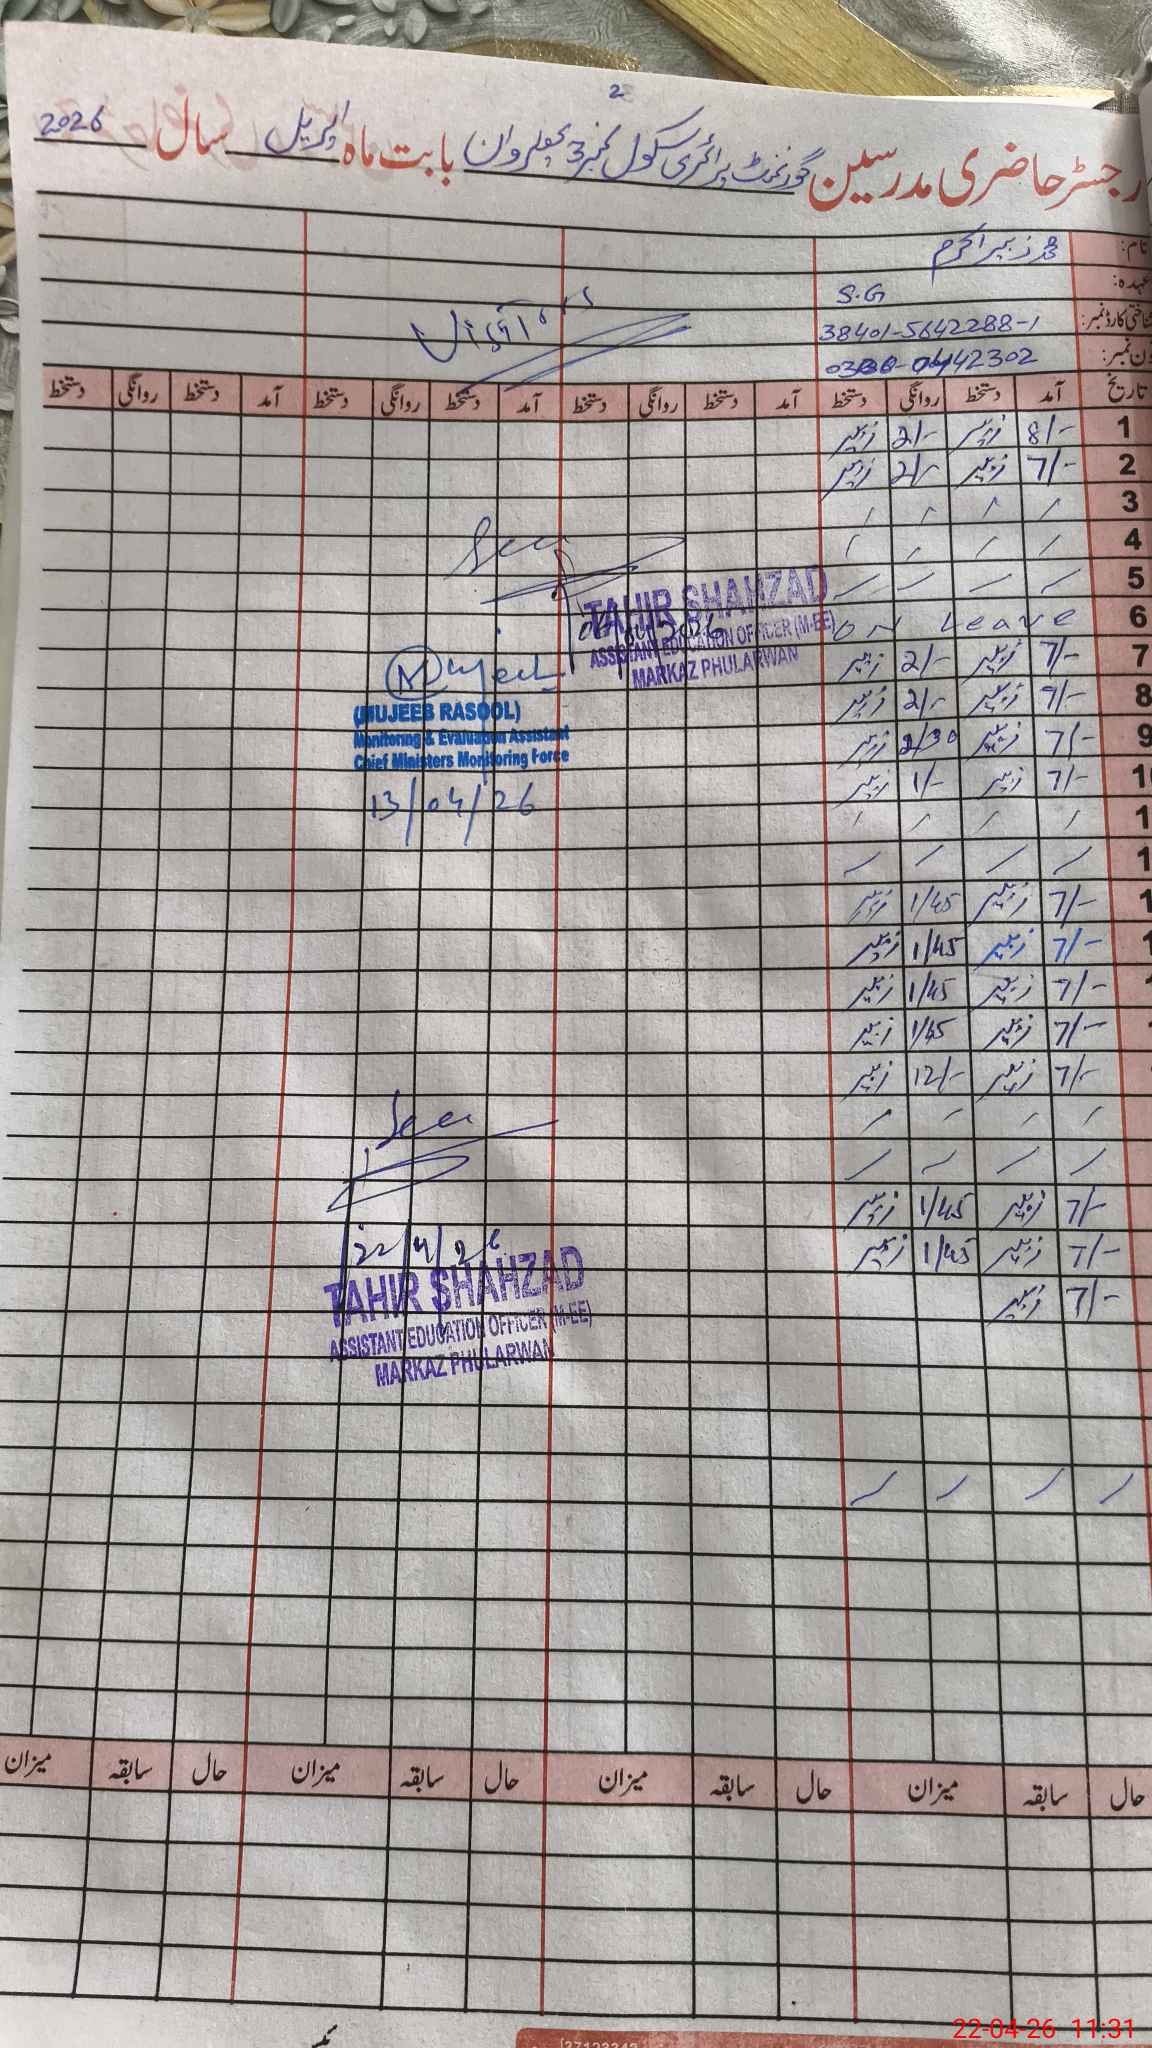 2
رجسٹر حاضری مدرسین گورنمنٹ پرائمری سکول نمبر 3 پھلروان بابت ماہ اپریل سال 2026
نام: محمد زبیر اکرم
عہدہ: S.G
شناختی کارڈ نمبر: 38401-5642288-1
فون نمبر:
Visitors
تاریخ آمد دستخط روانگی دستخط آمد دستخط روانگی دستخط آمد دستخط روانگی دستخط آمد دستخط روانگی دستخط
1 8/- زبیر 2/- زبیر
2 7/- زبیر 2/- زبیر
3
4
Seen
5
6 ON Leave
06/04/2026
TAHIR SHAHZAD
ASSISTANT EDUCATION OFFICER (M-EE)
MARKAZ PHULARWAN
7 7/- زبیر 2/- زبیر
Mujeeb
(MUJEEB RASOOL)
Monitoring & Evaluation Assistant
Chief Ministers Monitoring Force
13/04/26
8 زبیر 2/- زبیر
9 7/- زبیر 2/30 زبیر
7/- زبیر 1/- زبیر
7/- زبیر 1/45 زبیر
7/- زبیر 1/45 زبیر
7/- زبیر 1/45 زبیر
7/- زبیر 1/45 زبیر
7/- زبیر 12/- زبیر
Seen
7/- زبیر 1/45 زبیر
7/- زبیر 1/45 زبیر
7/- زبیر
22/4/26
TAHIR SHAHZAD
ASSISTANT EDUCATION OFFICER (M-EE)
MARKAZ PHULARWAN
حال سابقہ میزان حال سابقہ میزان حال سابقہ میزان حال سابقہ میزان
22-04-26 11:31